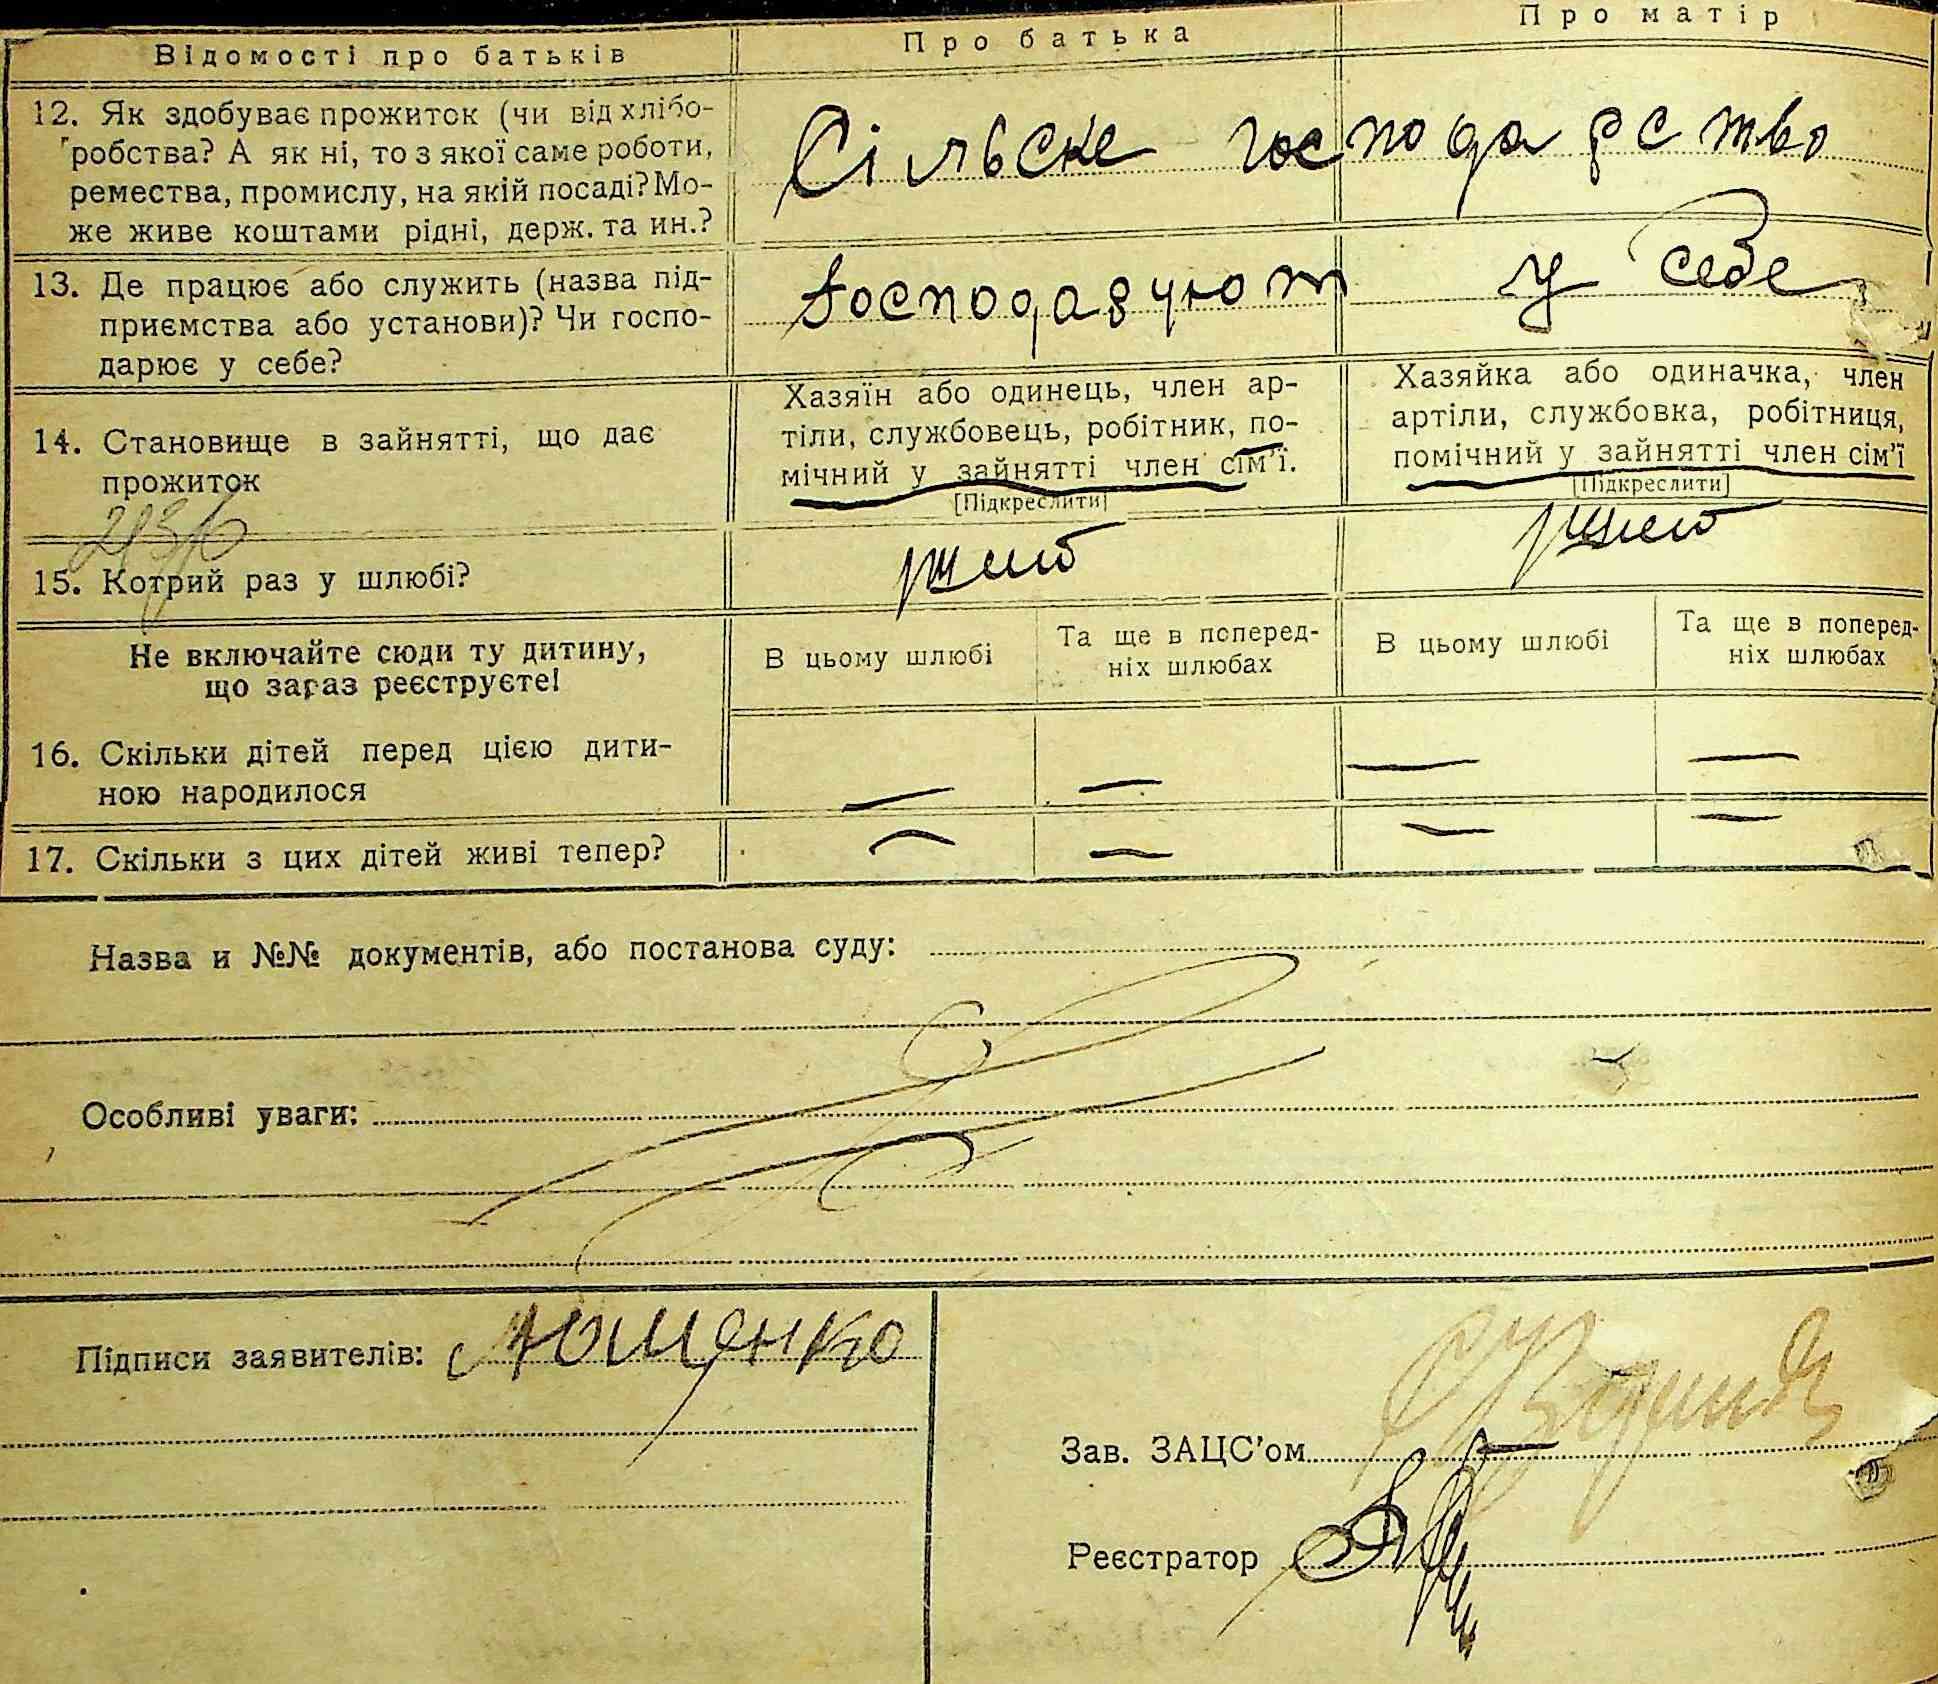 Відомості про батьків
Про батька
Про матір
12. Як здобуває прожиток (чи від хлібо-
робства? А як ні, то з якої саме роботи,
ремества, промислу, на якій посаді? Мо-
же живе коштами рідні, держ. та ин.?
Сільське господарство
13. Де працює або служить (назва під-
приємства або установи)? Чи госпо-
дарює у себе?
Господарюют у себе
14. Становище в зайнятті, що дає
прожиток
Хазяїн або одинець, член ар-
тіли, службовець, робітник, по-
мічний у зайнятті член сім'ї.
[Підкреслити]
Хазяйка або одиначка, член
артіли, службовка, робітниця,
помічний у зайнятті член сім'ї
[Підкреслити]
15. Котрий раз у шлюбі?
Не включайте сюди ту дитину,
що зараз реєструєте!
В цьому шлюбі
Та ще в поперед-
ніх шлюбах
В цьому шлюбі
Та ще в поперед-
ніх шлюбах
16. Скільки дітей перед цією дити-
ною народилося
— — — —
17. Скільки з цих дітей живі тепер?
— — — —
Назва и №№ документів, або постанова суду:
Особливі уваги:
Підписи заявителів:
Зав. ЗАЦС'ом
Реєстратор